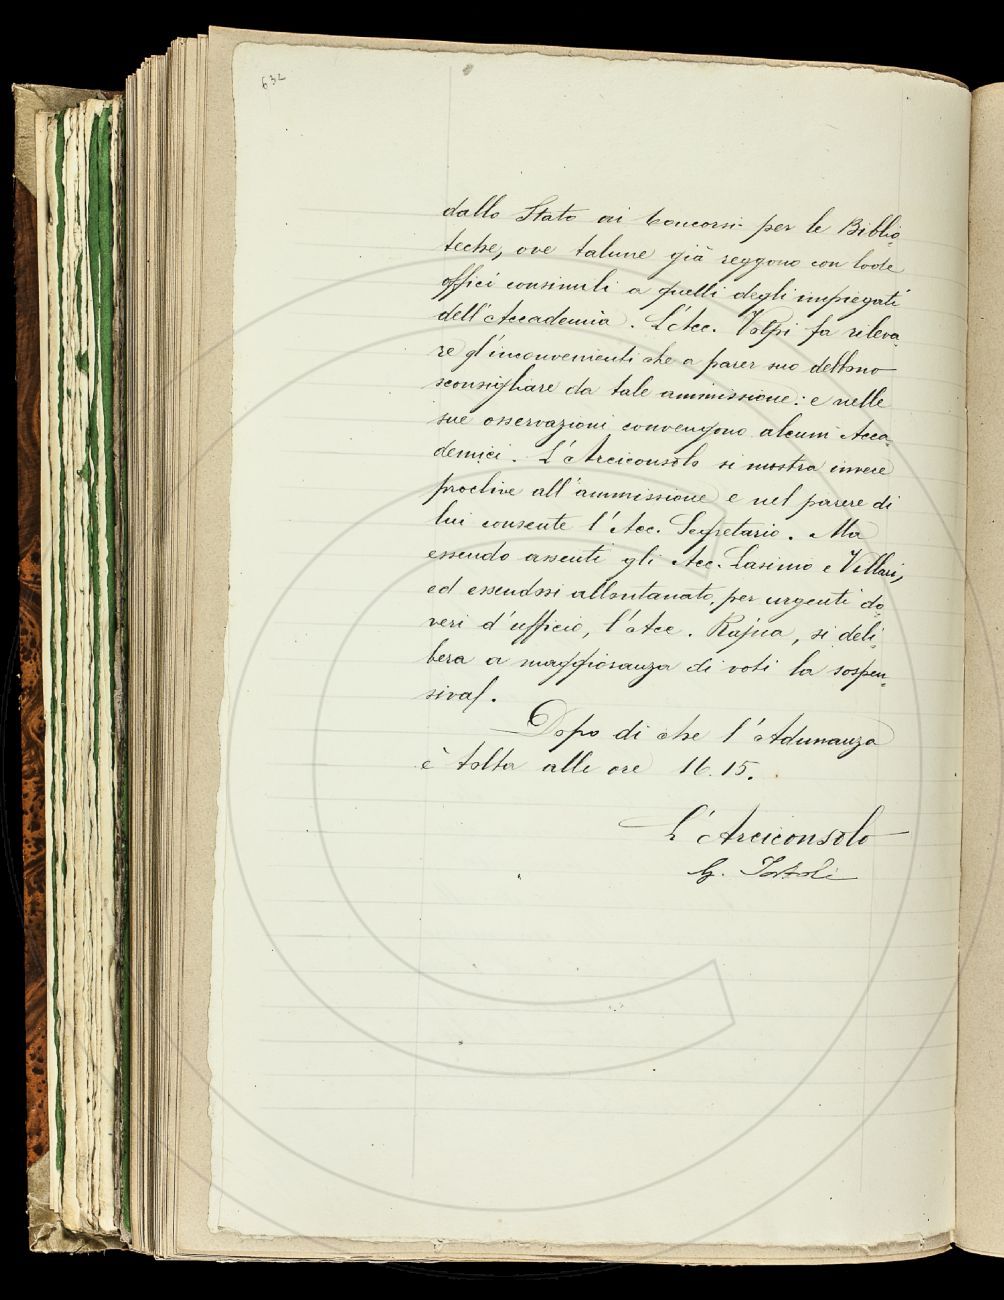 632
dallo Stato ai Concorsi per le Biblio-
teche, ove talune già reggono con lode
offici consimili a quelli degli impiegati
dell'Accademia. L'Acc. Volpi fa rileva-
re gl'inconvenienti che a parer suo debbono
sconsigliare da tale ammissione: e nelle
sue osservazioni convengono alcuni Acca-
demici. L'Arciconsolo si mostra invece
proclive all'ammissione e nel parere di
lui consente l'Acc. Segretario. Ma
essendo assenti gli Acc. Lasinio e Villari,
ed essendosi allontanato, per urgenti do-
veri d'ufficio, l'Acc. Rajna, si deli-
bera a maggioranza di voti la sospen-
siva.
Dopo di che l'Adunanza
è tolta alle ore 16.15.
L'Arciconsolo
G. Tortoli